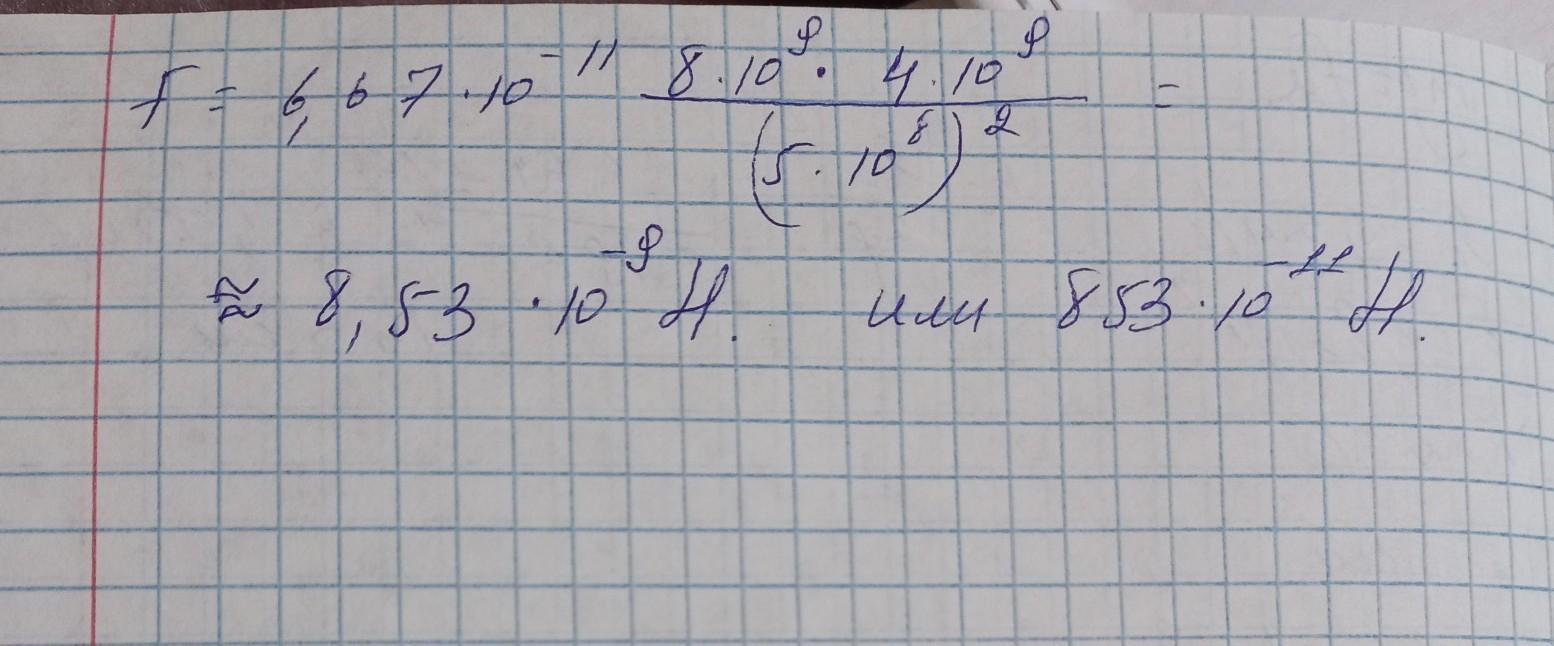 F = 6,67 · 10⁻¹¹ (8 · 10⁹ · 4 · 10⁹) / (5 · 10⁸)² =
≈ 8,53 · 10⁻⁹ Н. или 853 · 10⁻¹¹ Н.